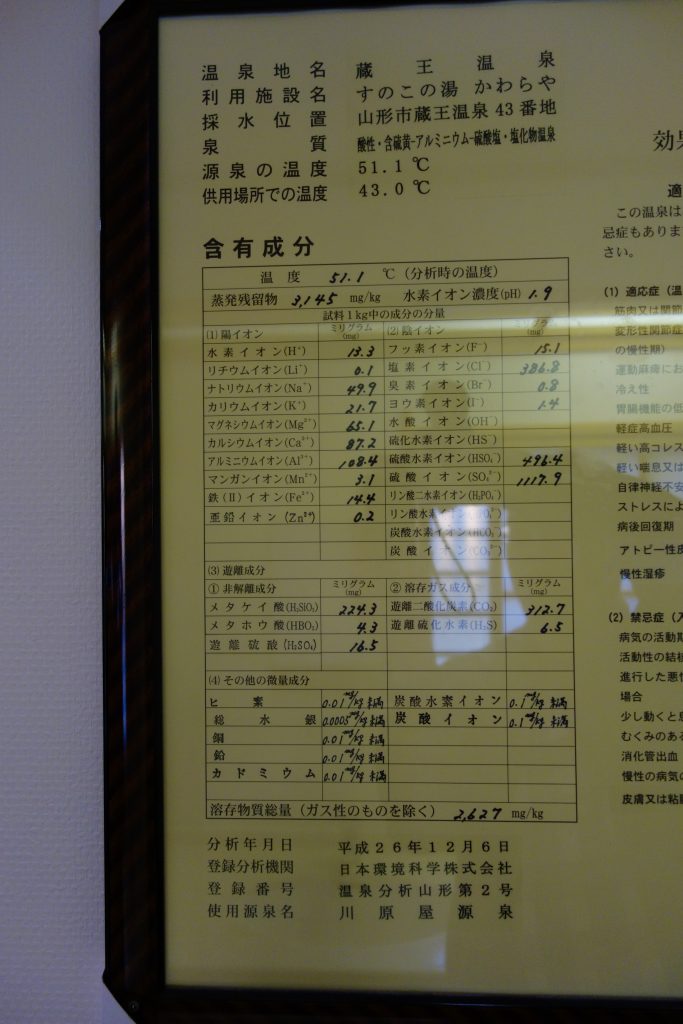 温泉地名 蔵王温泉
利用施設名 すのこの湯 かわらや
採水位置 山形市蔵王温泉43番地
泉質 酸性・含硫黄-アルミニウム-硫酸塩・塩化物温泉
源泉の温度 51.1℃
供用場所での温度 43.0℃
含有成分
温度 51.1 ℃(分析時の温度)
蒸発残留物 3,145 mg/kg 水素イオン濃度(pH) 1.9
試料1kg中の成分の分量
(1)陽イオン ミリグラム(mg) (2)陰イオン ミリグラム(mg)
水素イオン(H⁺) 13.3 フッ素イオン(F⁻) 15.1
リチウムイオン(Li⁺) 0.1 塩素イオン(Cl⁻) 386.8
ナトリウムイオン(Na⁺) 49.9 臭素イオン(Br⁻) 0.8
カリウムイオン(K⁺) 21.7 ヨウ素イオン(I⁻) 1.4
マグネシウムイオン(Mg²⁺) 65.1 水酸イオン(OH⁻)
カルシウムイオン(Ca²⁺) 87.2 硫化水素イオン(HS⁻)
アルミニウムイオン(Al³⁺) 108.4 硫酸水素イオン(HSO₄⁻) 496.4
マンガンイオン(Mn²⁺) 3.1 硫酸イオン(SO₄²⁻) 1117.9
鉄(II)イオン(Fe²⁺) 14.4 リン酸二水素イオン(H₂PO₄⁻)
亜鉛イオン(Zn²⁺) 0.2 リン酸水素イオン
炭酸水素イオン(HCO₃⁻)
炭酸イオン(CO₃²⁻)
(3)遊離成分
①非解離成分 ミリグラム(mg) ②溶存ガス成分 ミリグラム(mg)
メタケイ酸(H₂SiO₃) 224.3 遊離二酸化炭素(CO₂) 312.7
メタホウ酸(HBO₂) 4.3 遊離硫化水素(H₂S) 6.5
遊離硫酸(H₂SO₄) 16.5
(4)その他の微量成分
ヒ素 0.01mg/kg未満 炭酸水素イオン 0.1mg/kg未満
総水銀 0.0005mg/kg未満 炭酸イオン 0.1mg/kg未満
銅 0.01mg/kg未満
鉛 0.01mg/kg未満
カドミウム 0.01mg/kg未満
溶存物質総量(ガス性のものを除く) 2,627 mg/kg
分析年月日 平成26年12月6日
登録分析機関 日本環境科学株式会社
登録番号 温泉分析山形第2号
使用源泉名 川原屋源泉
効
適
この温泉は
忌症もありま
さい。
(1) 適応症(温
筋肉又は関節
変形性関節症
の慢性期)
運動麻痺にお
冷え性
胃腸機能の低
軽症高血圧
軽い高コレス
軽い喘息又は
自律神経不安
ストレスによ
病後回復期
アトピー性皮
慢性湿疹
(2) 禁忌症(入
病気の活動期
活動性の結核
進行した悪性
場合
少し動くと息
むくみのある
消化管出血
慢性の病気の
皮膚又は粘膜